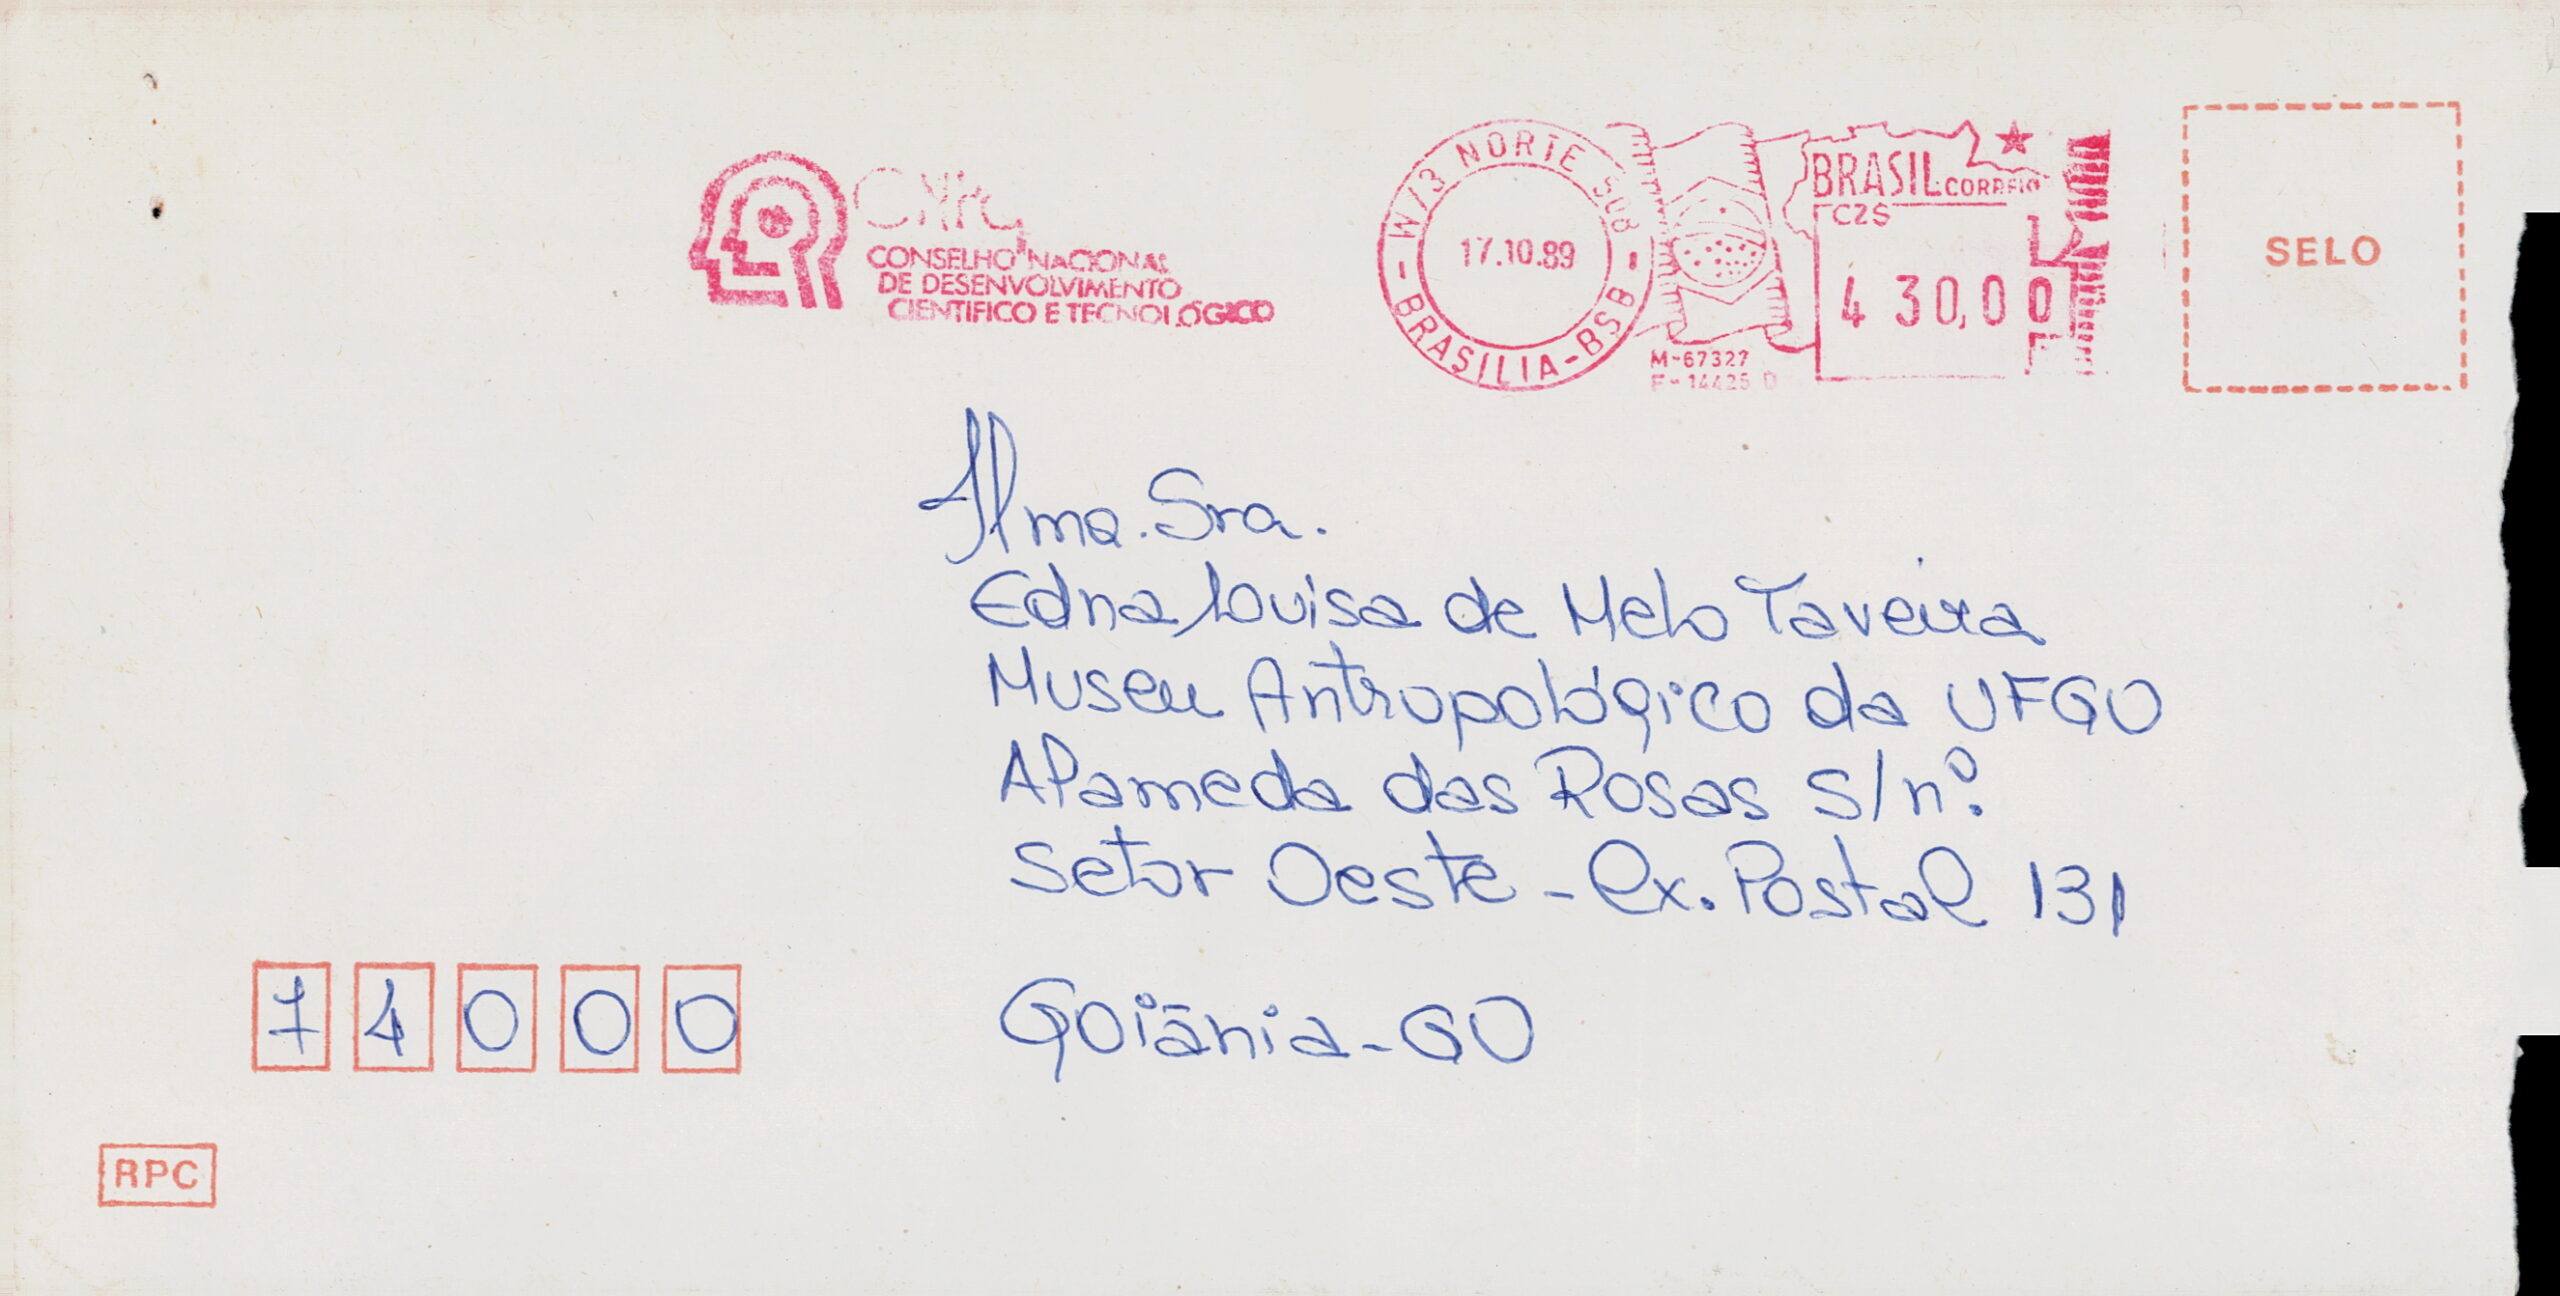 CNPq
CONSELHO NACIONAL
DE DESENVOLVIMENTO
CIENTIFICO E TECNOLÓGICO
W/3 NORTE 508
17.10.89
BRASÍLIA-BSB
M-67327
F-14425
BRASIL CORREIO
CZS
430,00
SELO
Ilma. Sra.
Edna Louisa de Melo Taveira
Museu Antropológico da UFGO
Alameda das Rosas s/nº.
Setor Oeste - Cx. Postal 131
74000
Goiânia-GO
RPC